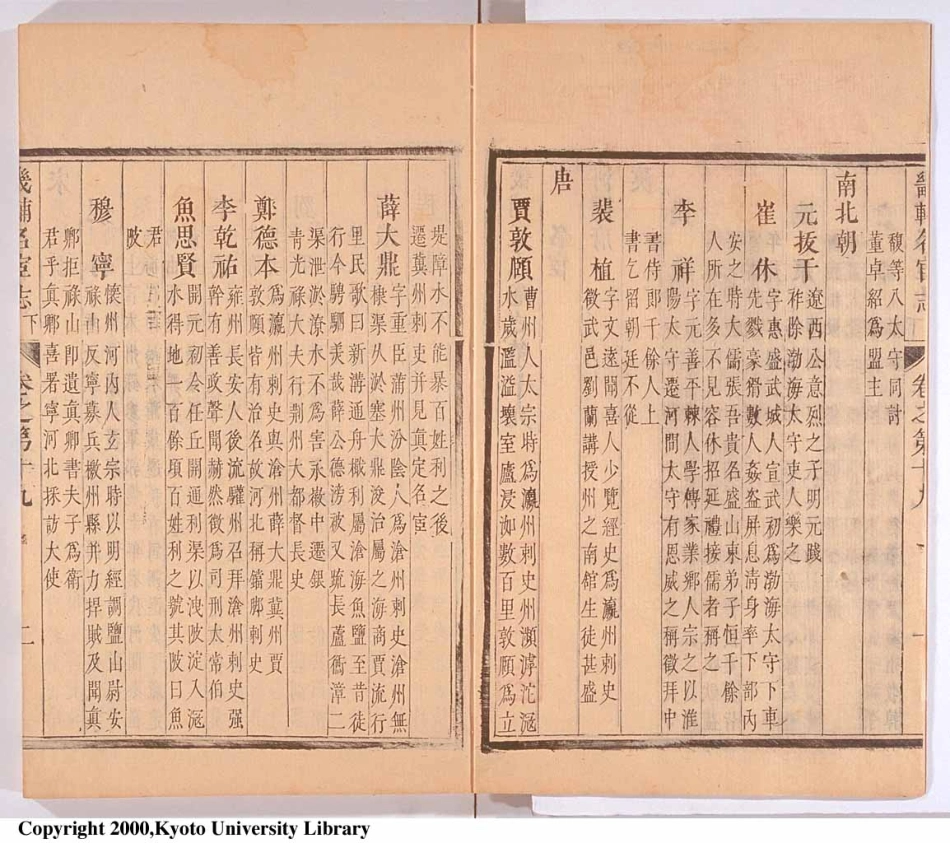 馥等八太守同討
董卓紹為盟主
南北朝
元拔干遼西公意烈之子明元踐
祚除渤海太守吏人樂之
崔休字惠盛武城人宣武初為渤海太守下車
先戮豪猾數人姦盜屏息清身率下部內
安之時大儒張吾貴名盛山東弟子恒千餘
人所在多不見容休招延禮接儒者稱之
李祥字元善平棘人學傳家業鄉人宗之以淮
陽太守遷河間太守有恩威之稱徵拜中
書侍郎千餘人上
書乞留朝廷不從
唐
裴植字文遠聞喜人少覽經史為瀛州刺史
徵武邑劉蘭講授州之南館生徒甚盛
賈敦頤曹州人太宗時為瀛州刺史州瀕滹沱滱
水歲濫溢壞室廬浸洳數百里敦頤為立
堤障水不能暴百姓利之後
遷冀州刺史并見真定名宦
薛大鼎字重臣蒲州汾陰人為滄州刺史滄州無
棣渠久淤塞大鼎浚治屬之海商賈流行
里民歌曰新溝通舟楫利屬滄海魚鹽至昔徒
行今騁駟美哉薛公德滂被又疏長蘆衡漳二
渠泄淤潦水不為害永徽中遷銀
青光祿大夫行荊州大都督長史
鄭德本為瀛州刺史與滄州薛大鼎冀州賈
敦頤皆有治名故河北稱鐺脚刺史
李乾祐雍州長安人後流驩州召拜滄州刺史强
幹有善政聲聞赫然徵為司刑太常伯
魚思賢開元初令任丘開通利渠以洩陂淀入滱
水得地一百餘頃百姓利之號其陂曰魚
君
陂
穆寧懷州河內人玄宗時以明經調鹽山尉安
祿山反寧募兵檄州縣并力捍賊及聞真
卿拒祿山即遣真卿書夫子為衛
君乎真卿喜署寧河北採訪大使
卷之第十九
一
下
卷之第十九
二
Copyright 2000,Kyoto University Library